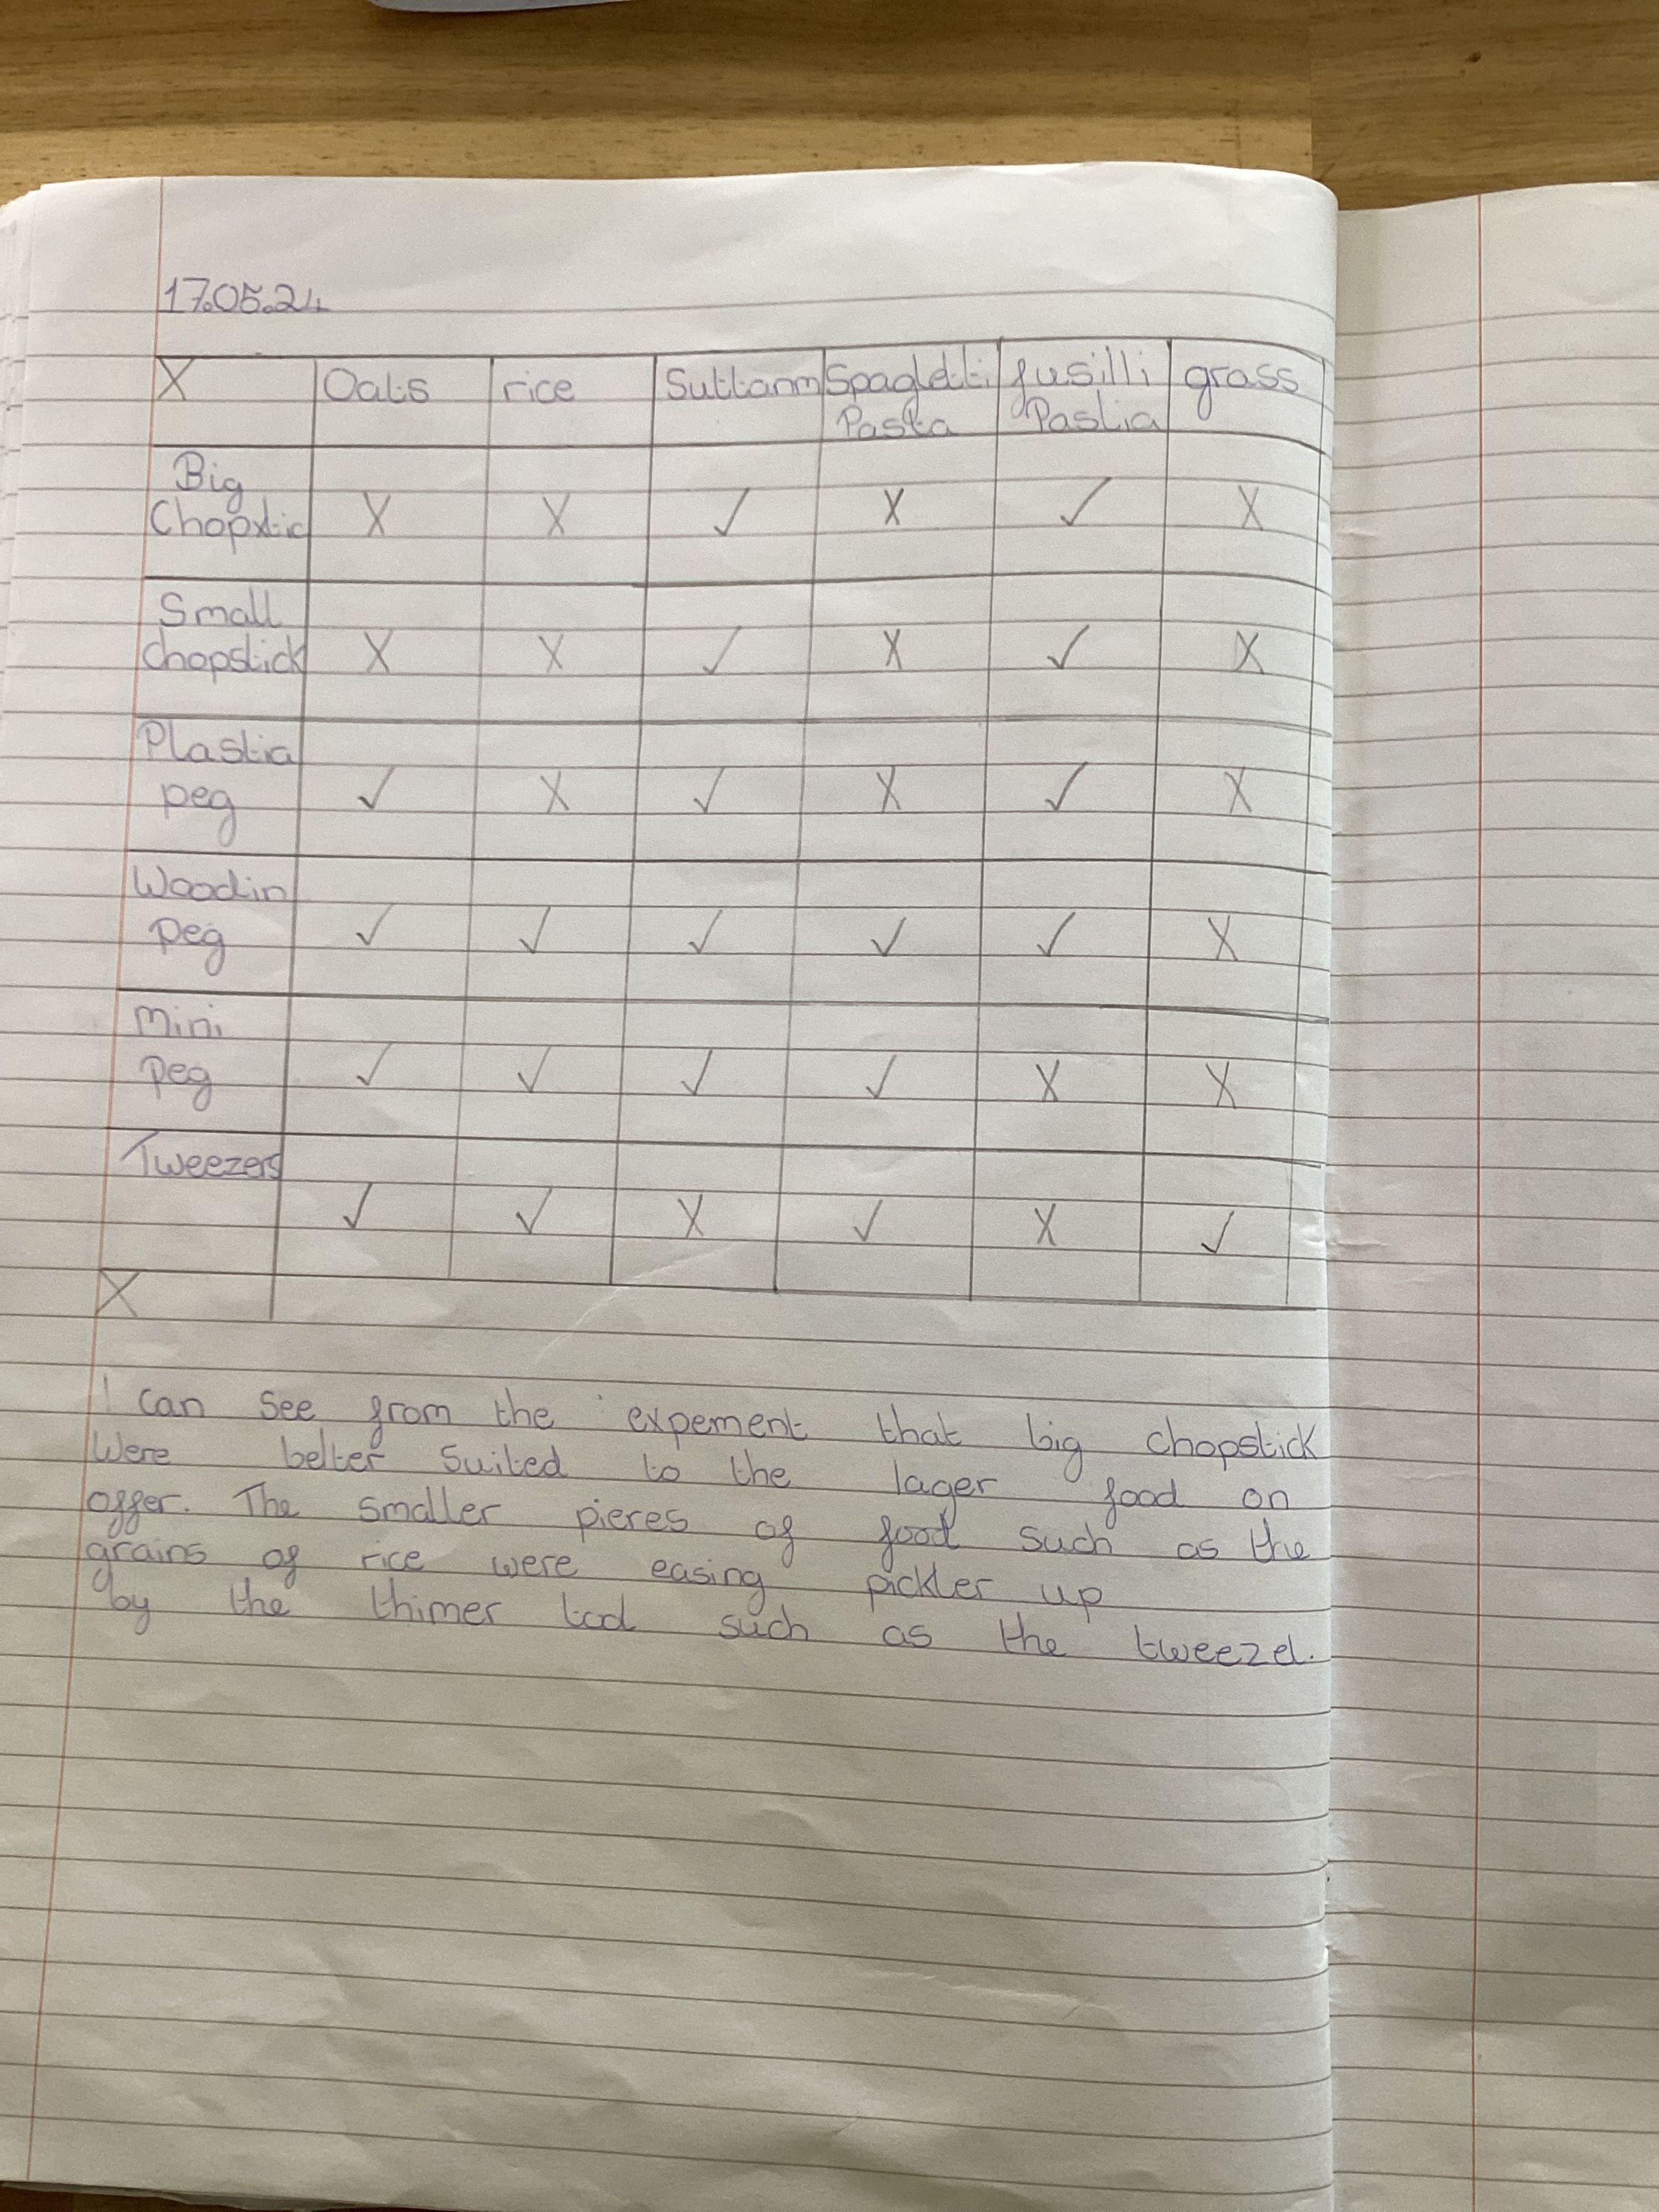 17.05.24
X Oats rice Suttanm Spagletti fusilli grass
Pasta Pastia
Big
Chopxtic X X ✓ X ✓ X
Small
chopstick X X ✓ X ✓ X
Plastia
peg ✓ X ✓ X ✓ X
Woodin
peg ✓ ✓ ✓ ✓ ✓ X
Mini
peg ✓ ✓ ✓ ✓ X X
Tweezers
✓ ✓ X ✓ X ✓
X
I can see from the expement that big chopstick
Were better suited to the lager food on
offer. The smaller pieres of food such as the
grains of rice were easing pickler up
by the thimer tod such as the tweezel.